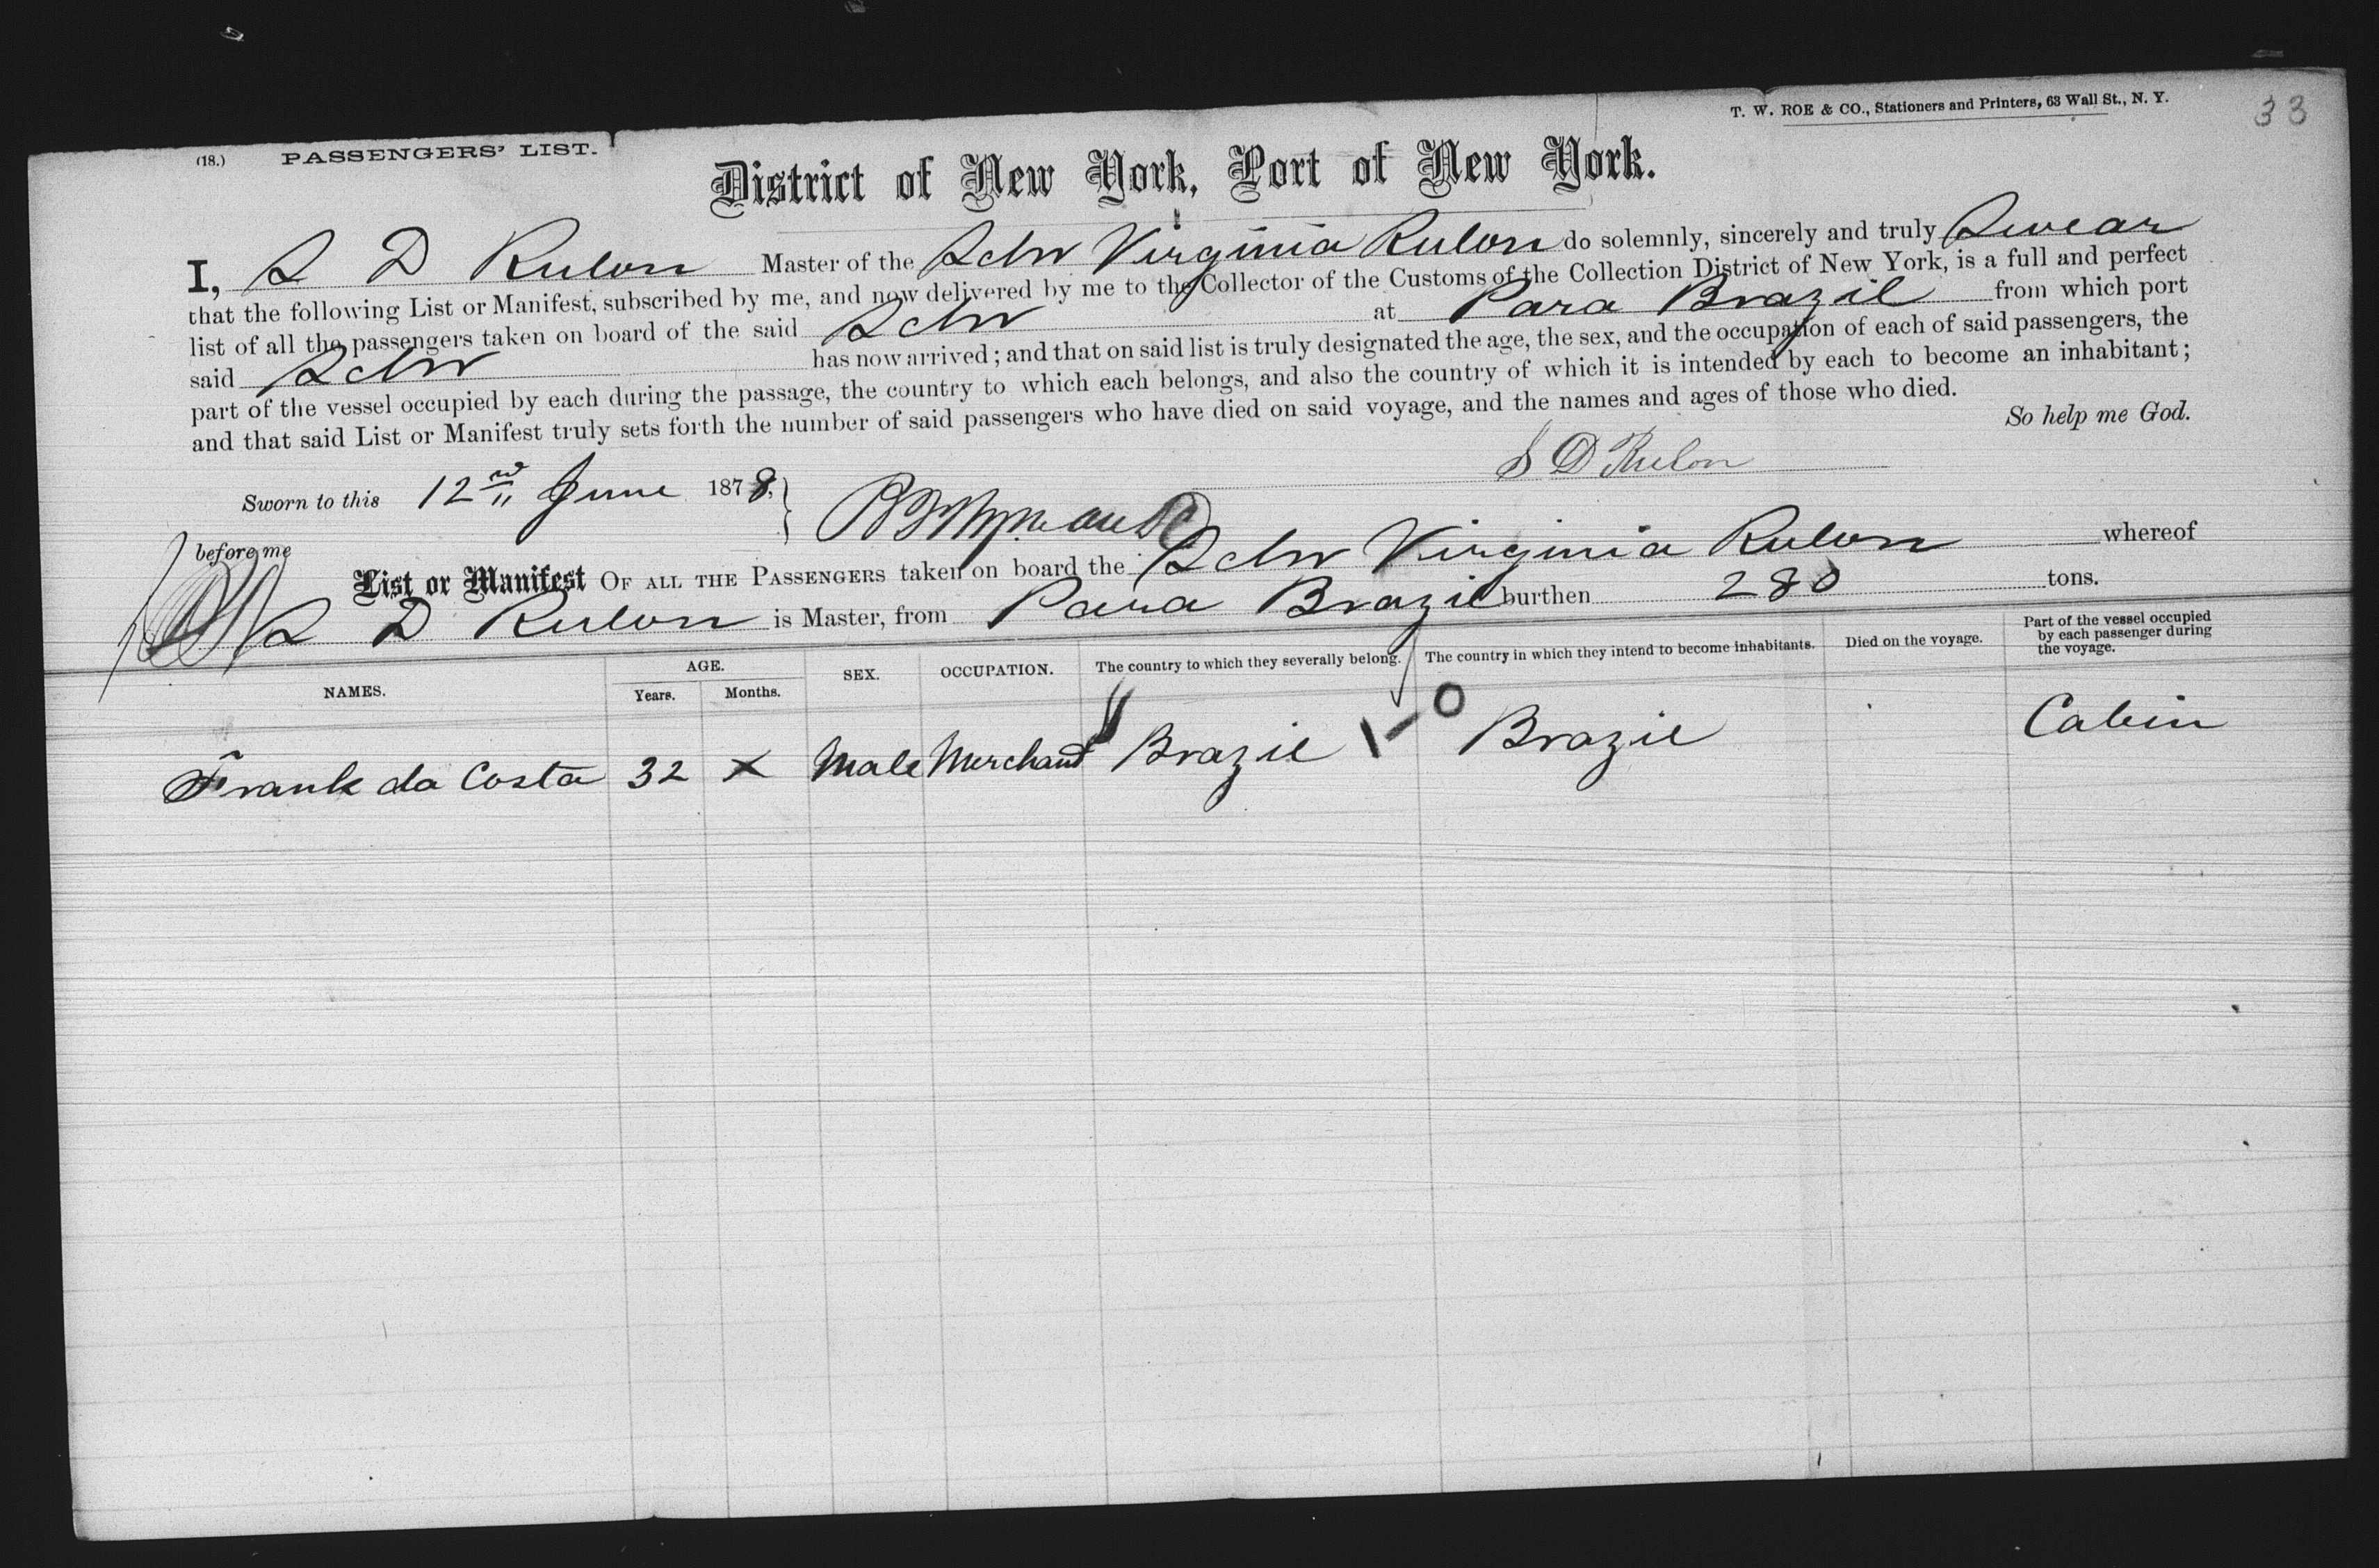 T. W. ROE & CO., Stationers and Printers, 63 Wall St., N. Y.
33
(18.) PASSENGERS' LIST.
District of New York, Port of New York.
I, S D Rulon Master of the Schr Virginia Rulon do solemnly, sincerely and truly Swear
that the following List or Manifest, subscribed by me, and now delivered by me to the Collector of the Customs of the Collection District of New York, is a full and perfect
list of all the passengers taken on board of the said Schr at Para Brazil from which port
said Schr has now arrived; and that on said list is truly designated the age, the sex, and the occupation of each of said passengers, the
part of the vessel occupied by each during the passage, the country to which each belongs, and also the country of which it is intended by each to become an inhabitant;
and that said List or Manifest truly sets forth the number of said passengers who have died on said voyage, and the names and ages of those who died.
So help me God.
S D Rulon
Sworn to this 12nd June 1878,
before me
List or Manifest OF ALL THE PASSENGERS taken on board the Schr Virginia Rulon whereof
S D Rulon is Master, from Para Brazil burthen 280 tons.
NAMES. AGE. Years. Months. SEX. OCCUPATION. The country to which they severally belong. The country in which they intend to become inhabitants. Died on the voyage. Part of the vessel occupied by each passenger during the voyage.
Frank da Costa 32 x Male Merchant Brazil 1-0 Brazil Cabin